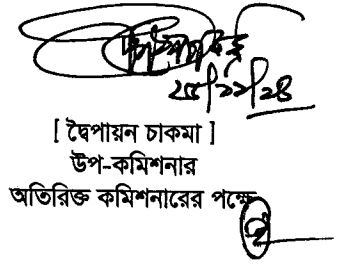 ২৫/১১/২৪
[ দ্বৈপায়ন চাকমা ]
উপ-কমিশনার
অতিরিক্ত কমিশনারের পক্ষে